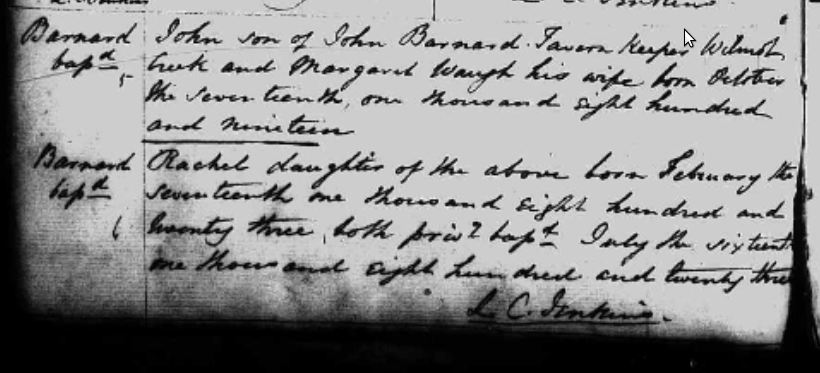 L. C. Jenkins
Barnard John son of John Barnard Tavern Keeper Wilmot
bapd Creek and Margaret Waugh his wife born October
5 the Seventeenth, one thousand Eight hundred
and nineteen
Barnard Rachel daughter of the above born February the
bapd Seventeenth one thousand Eight hundred and
6 twenty three, both privt bapt July the sixteenth
one thousand Eight hundred and twenty three
L. C. Jenkins.